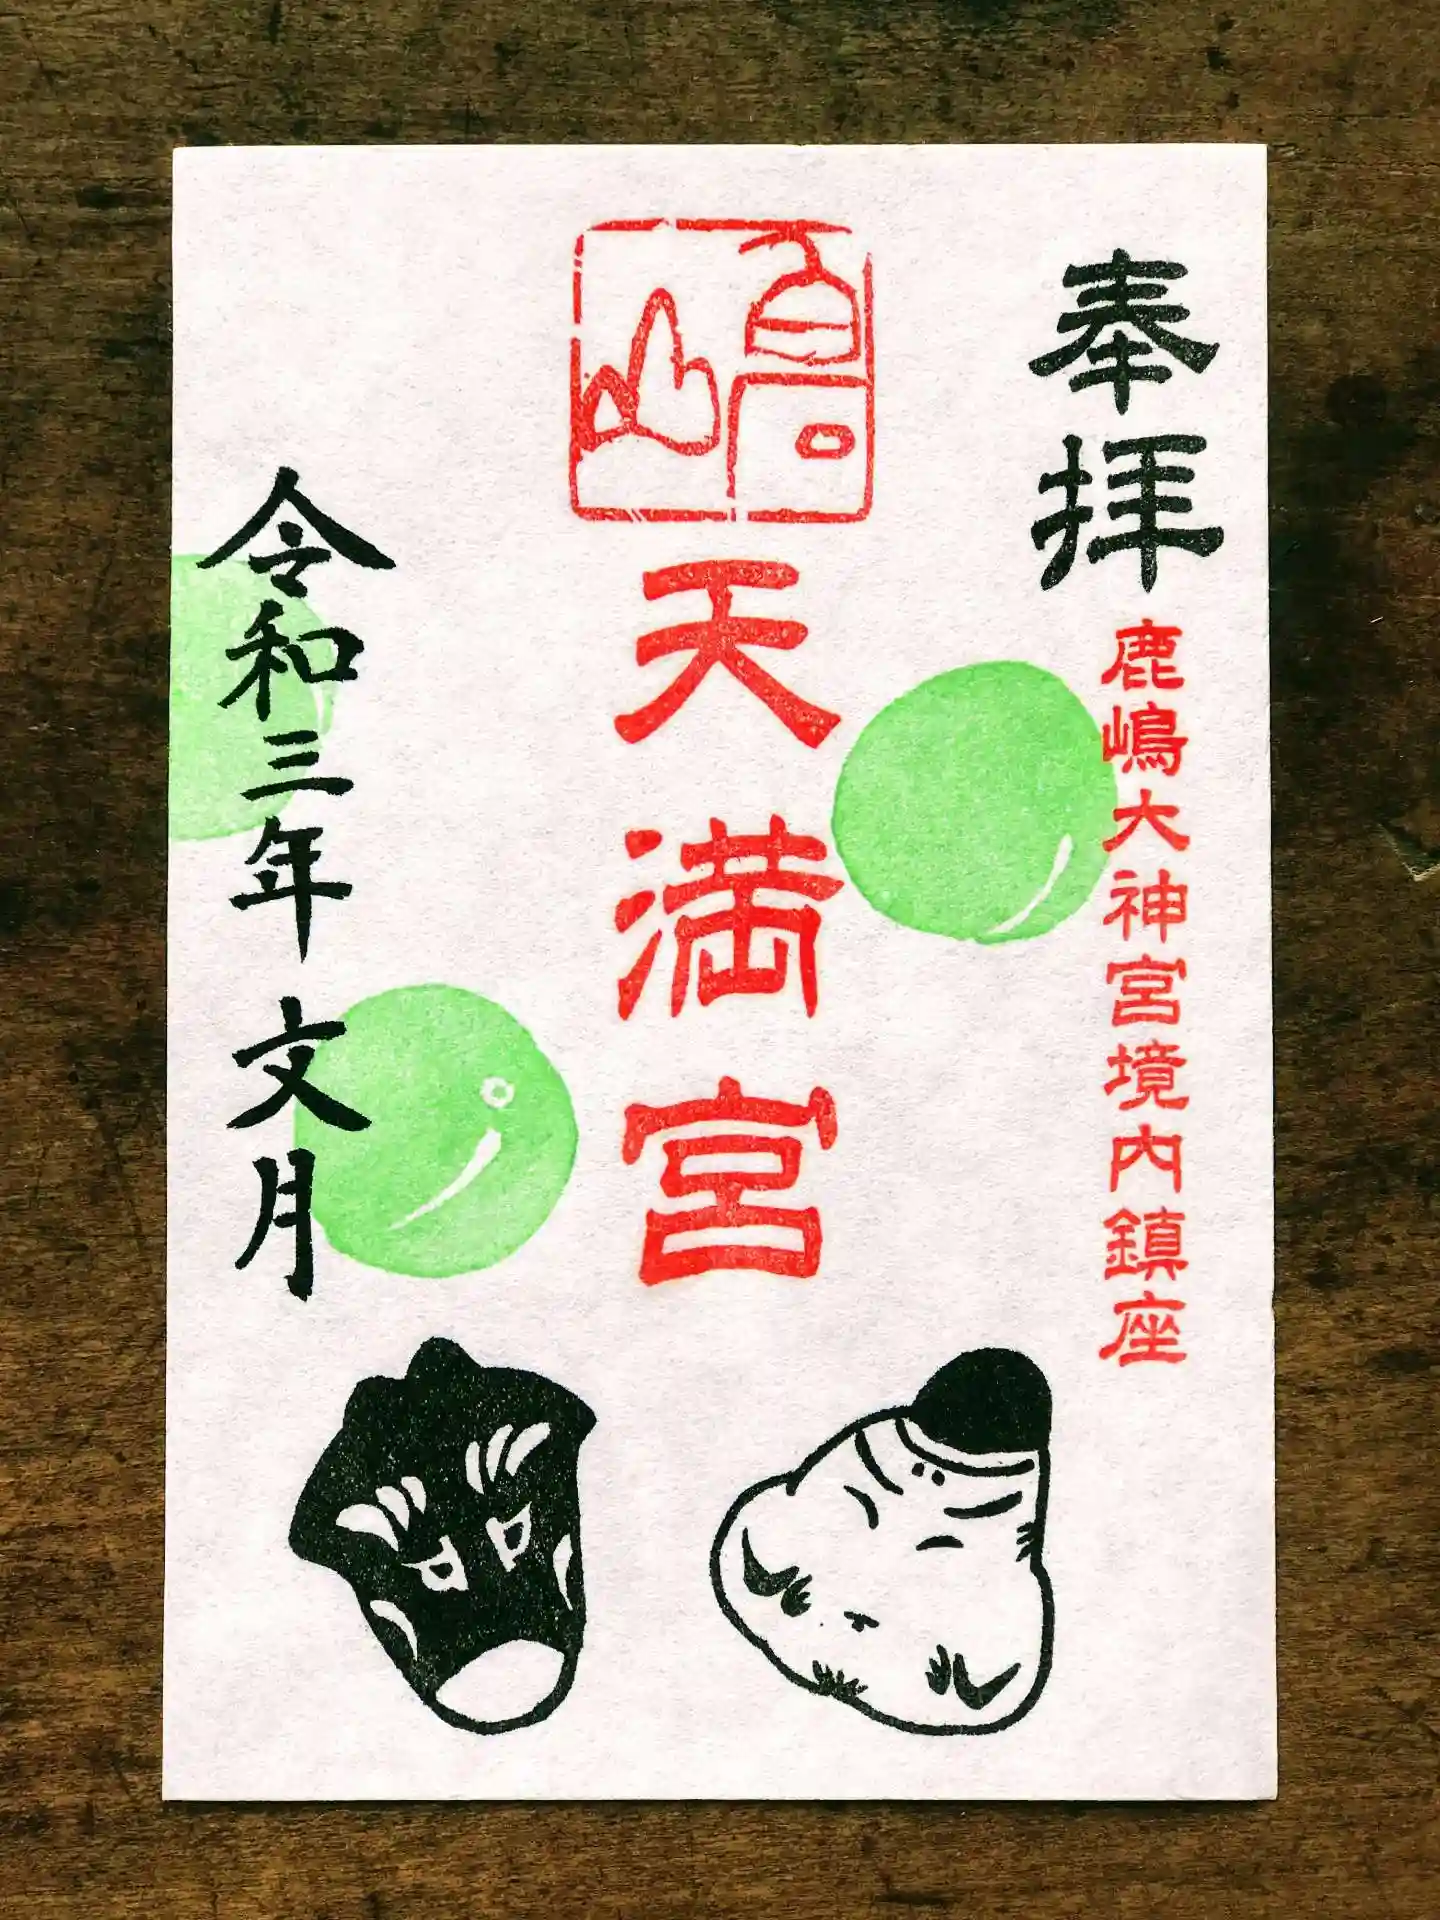 奉拝
鹿嶋大神宮境内鎮座
嶋
天満宮
令和三年 文月